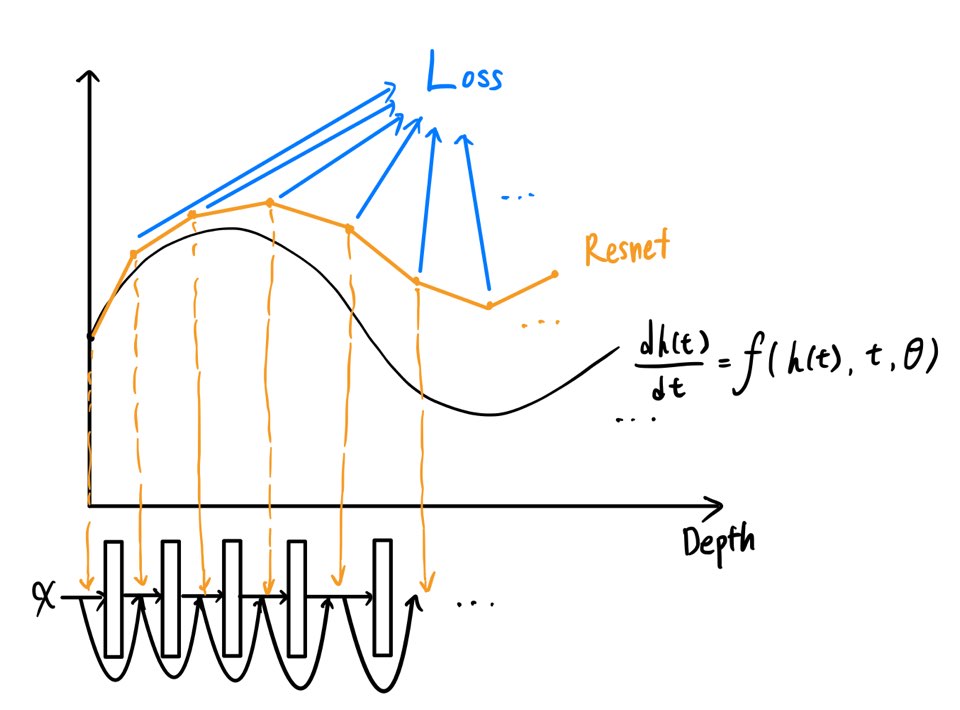 Loss
...
Resnet
...
dh(t)/dt = f(h(t), t, θ)
...
Depth
x
...